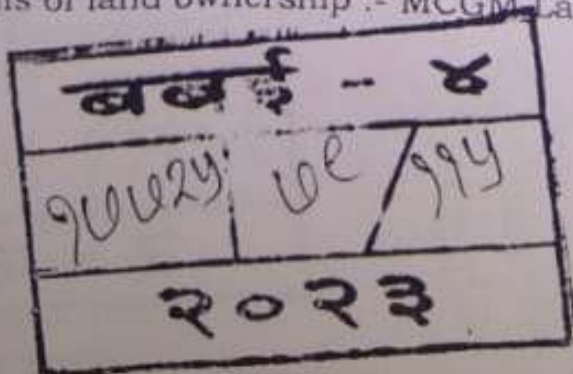 of land ownership :- MCGM
बबई - ४
१७७२५ ७९ / ११५
२०२३